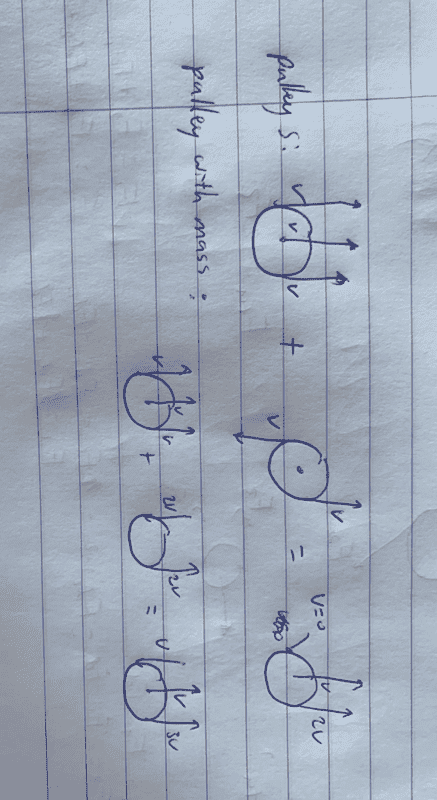 pulley s: v v v + v v = v=0 v 2v
pulley with mass: v v v + 2v 2v = v v 3v